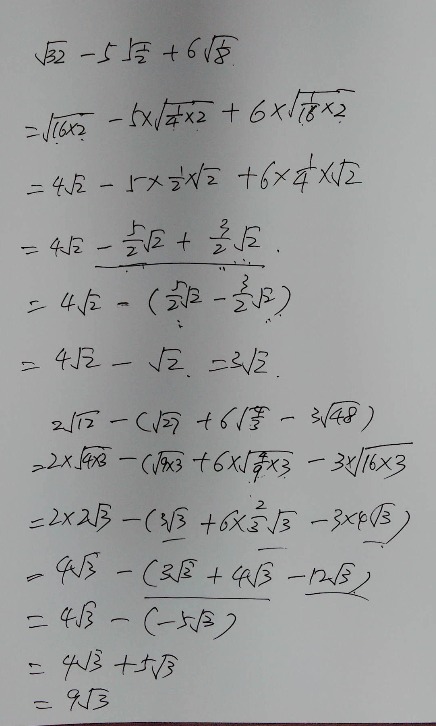 √32 − 5√½ + 6√⅛
= √(16×2) − 5×√(¼×2) + 6×√(1/16×2)
= 4√2 − 5×½×√2 + 6×¼×√2
= 4√2 − 5/2√2 + 3/2√2.
= 4√2 − (5/2√2 − 3/2√2)
= 4√2 − √2. = 3√2.
2√12 − (√27 + 6√(4/3) − 3√48)
= 2×√(4×3) − (√(9×3) + 6×√(4/9×3) − 3×√(16×3)
= 2×2√3 − (3√3 + 6×2/3√3 − 3×4√3)
= 4√3 − (3√3 + 4√3 − 12√3)
= 4√3 − (−5√3)
= 4√3 + 5√3
= 9√3